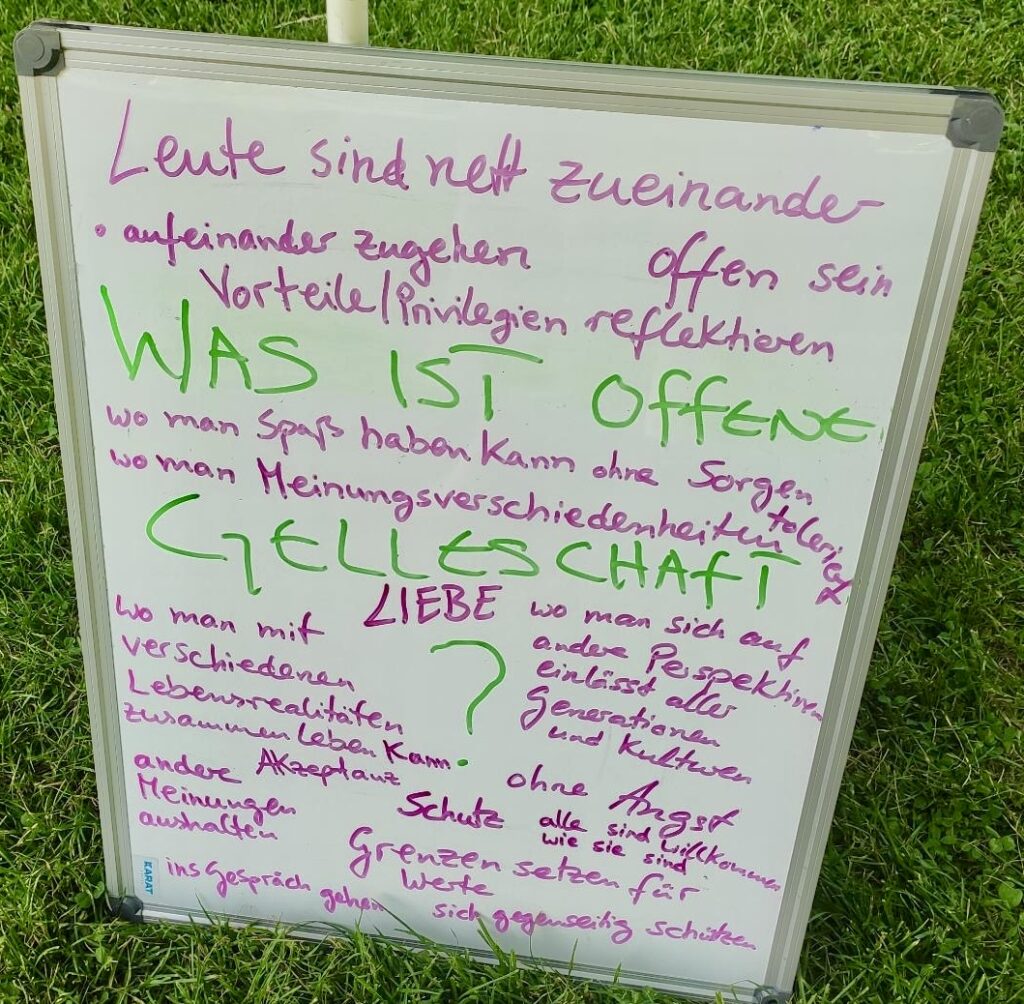 Leute sind nett zueinander
• aufeinander zugehen offen sein
Vorteile/Privilegien reflektieren
WAS IST OFFENE
wo man Spaß haben kann ohne Sorgen
wo man Meinungsverschiedenheiten toleriert
GELLESCHAFT
LIEBE
?
wo man mit
verschiedenen
Lebensrealitäten
zusammen leben kann.
wo man sich auf
andere Perspektiven
einlässt aller
Generationen
und Kulturen
andere
Meinungen
aushalten
Akzeptanz
Schutz
ohne Angst
alle sind willkommen
wie sie sind
Grenzen setzen für
Werte
ins Gespräch gehen
sich gegenseitig schützen
KARAT